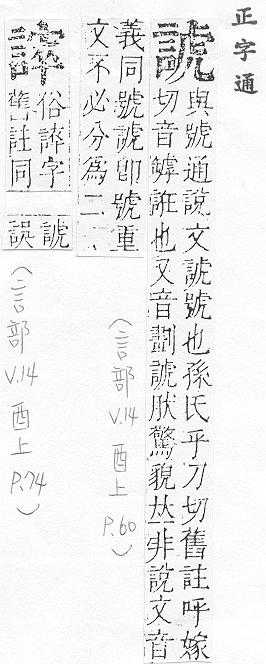 正字通
諕
與號通說文諕號也孫氏乎刀切舊註呼嫁
切音罅誑也又音劃諕肰驚貌𠀤非說文音
義同號諕卽號重
文不必分為二
(言部 V.14 酉上 P.60)
俗誶字
舊註同
諕
誤
(言部 V.14 酉上 P.74)